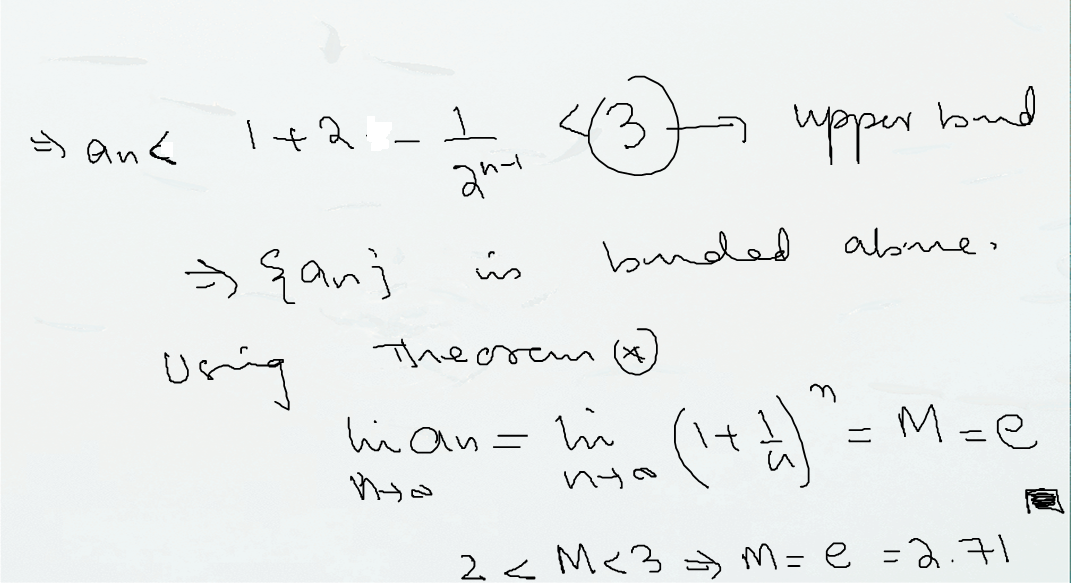 ⇒ an < 1 + 2 - 1/2^(n-1) < 3 → upper bound
⇒ {an} is bounded above.
Using Theorem (*)
lim n→∞ an = lim n→∞ (1 + 1/n)^n = M = e
2 < M < 3 ⇒ M = e = 2.71